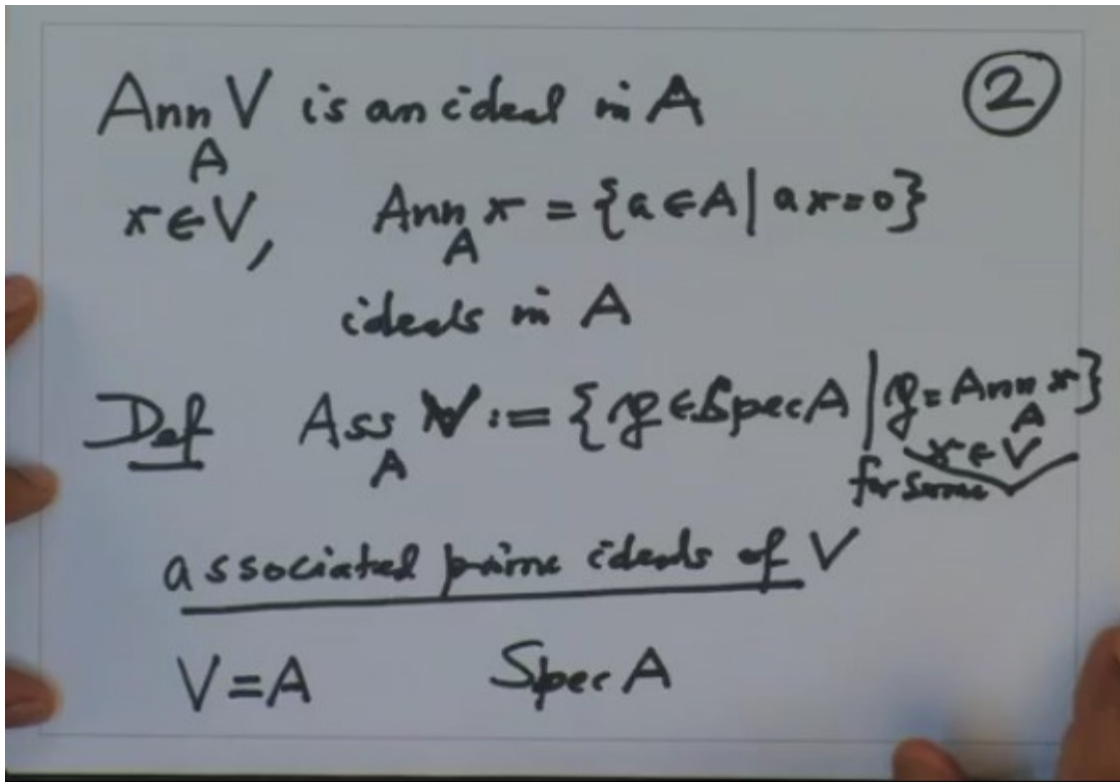 ②
Ann_A V is an ideal in A
x ∈ V, Ann_A x = {a ∈ A | ax = 0}
ideals in A
Def Ass_A V := {𝔭 ∈ Spec A | 𝔭 = Ann_A x}
for some x ∈ V
associated prime ideals of V
V = A Spec A